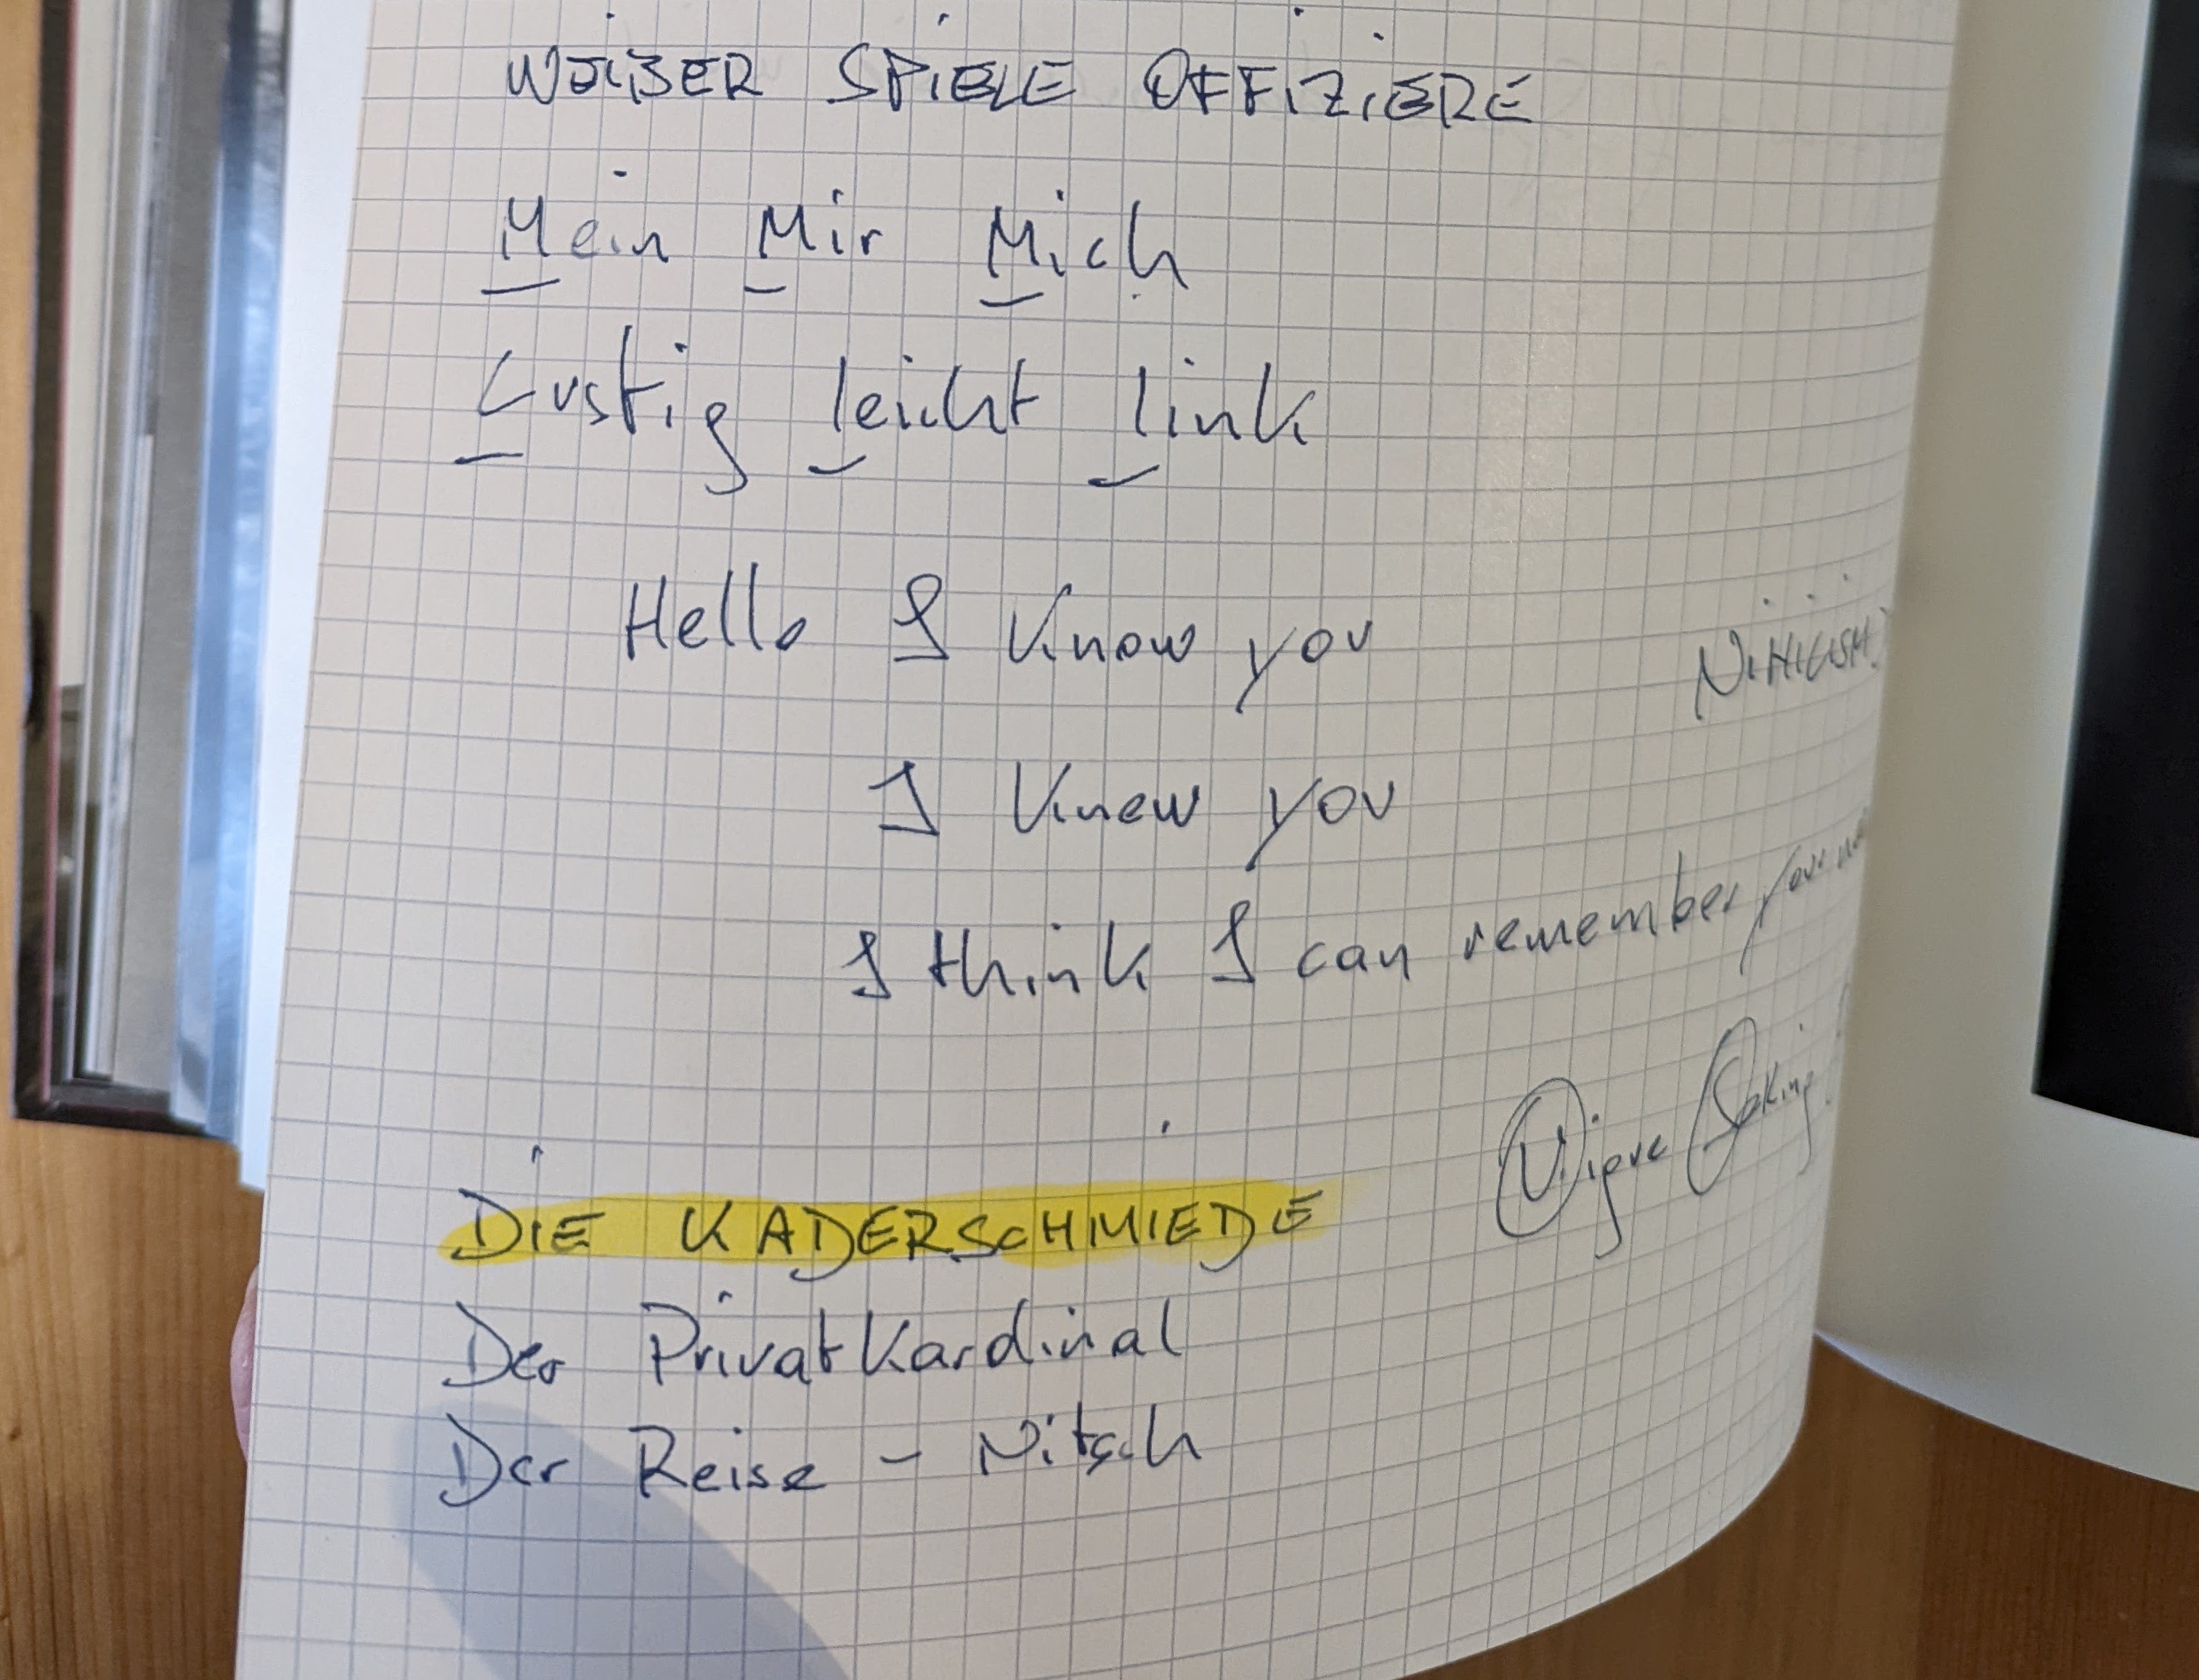 SPIELE OFFIZIERE
Mein Mir Mich
Lustig leicht link
Hello I know you
NIHILISM
I knew you
I think I can remember your
DIE KADERSCHMIEDE
Der Privatkardinal
Der Reise - Nitsch